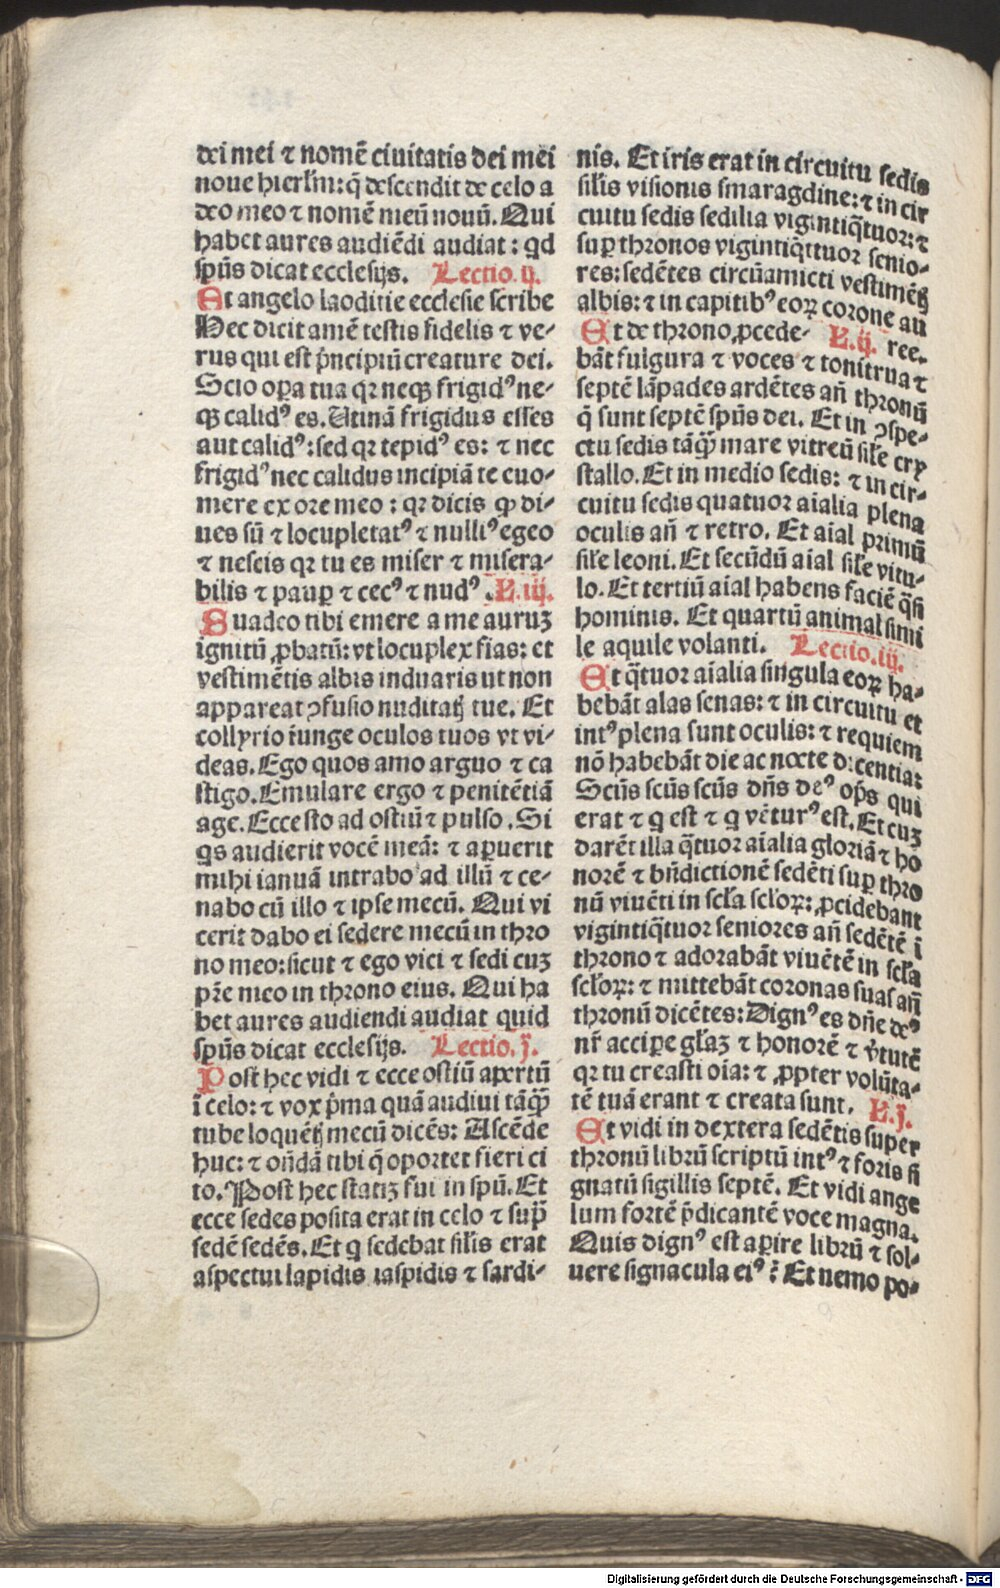 dei mei ⁊ nomē ciuitatis dei mei
noue hierl̄m: q̄ descendit de celo a
deo meo ⁊ nomē meū nouū. Qui
habet aures audiēdi audiat: qd
spūs dicat ecclesijs. Lectio. ij.
Et angelo laoditie ecclesie scribe
Hec dicit amē testis fidelis ⁊ ve-
rus qui est p̄ncipiū creature dei.
Scio oꝑa tua qꝛ neqꝫ frigidꝰ ne-
qꝫ calidꝰ es. Utinā frigidus esses
aut calidꝰ: sed qꝛ tepidꝰ es: ⁊ nec
frigidꝰ nec calidus incipiā te euo-
mere ex ore meo: qꝛ dicis ꝙ di-
ues sū ⁊ locupletatꝰ ⁊ nulliꝰ egeo
⁊ nescis qꝛ tu es miser ⁊ misera-
bilis ⁊ pauꝑ ⁊ cecꝰ ⁊ nudꝰ. L. iij.
Suadeo tibi emere a me auruꝫ
ignitū ꝓbatū: vt locuplex fias: et
vestimētis albis induaris ut non
appareat ꝯfusio nuditatꝭ tue. Et
collyrio īunge oculos tuos vt vi-
deas. Ego quos amo arguo ⁊ ca
stigo. Emulare ergo ⁊ penitētiā
age. Ecce sto ad ostiū ⁊ pulso. Si
qs audierit vocē meā: ⁊ aꝑuerit
mihi ianuā intrabo ad illū ⁊ ce-
nabo cū illo ⁊ ipse mecū. Qui vi
cerit dabo ei sedere mecū in thro
no meo: sicut ⁊ ego vici ⁊ sedi cuꝫ
pr̄e meo in throno eius. Qui ha
bet aures audiendi audiat quid
spūs dicat ecclesijs. Lectio. j.
Post hec vidi ⁊ ecce ostiū apertū
ī celo: ⁊ vox p̄ma quā audiui tāꝙ̄
tube loquētꝭ mecū dicēs: Ascēde
huc: ⁊ on̄dā tibi q̄ oportet fieri ci
to. Post hec statiꝫ fui in spū. Et
ecce sedes posita erat in celo ⁊ suꝑ
sedē sedēs. Et q sedebat sil̄is erat
aspectui lapidis iaspidis ⁊ sardi-
nis. Et iris erat in circuitu sedis
sil̄is visionis smaragdine: ⁊ in cir
cuitu sedis sedilia vigintiq̄tuor: ⁊
suꝑ thronos vigintiq̄ttuor senio-
res: sedētes circūamicti vestimētꝭ
albis: ⁊ in capitibꝰ eoꝝ corone au
Et de throno ꝓcede- L. ij. ree.
bāt fulgura ⁊ voces ⁊ tonitrua ⁊
septē lāpades ardētes an̄ thronū
q̄ sunt septē spūs dei. Et in ꝯspe-
ctu sedis tāꝙ̄ mare vitreū sil̄e cry
stallo. Et in medio sedis: ⁊ in cir-
cuitu sedis quatuor aīalia plena
oculis an̄ ⁊ retro. Et aīal primū
sil̄e leoni. Et secūdū aīal sil̄e vitu-
lo. Et tertiū aīal habens faciē q̄si
hominis. Et quartū animal simi
le aquile volanti. Lectio. iij.
Et q̄tuor aīalia singula eoꝝ ha-
bebāt alas senas: ⁊ in circuitu et
intꝰ plena sunt oculis: ⁊ requiem
nō habebāt die ac nocte dicentia:
Scūs scūs scūs dn̄s deꝰ op̄s qui
erat ⁊ q est ⁊ q vēturꝰ est. Et cuꝫ
darēt illa q̄tuor aīalia gloriā ⁊ ho
norē ⁊ bn̄dictionē sedēti suꝑ thro
nū viuēti in scl̄a scl̄oꝝ: ꝓcidebant
vigintiq̄tuor seniores an̄ sedētē ī
throno ⁊ adorabāt viuētē in scl̄a
scl̄oꝝ: ⁊ mittebāt coronas suas an̄
thronū dicētes: Dignꝰ es dn̄e deꝰ
nr̄ accipe gl̄aꝫ ⁊ honorē ⁊ v̄tutē
qꝛ tu creasti oīa: ⁊ ꝓpter volūta-
tē tuā erant ⁊ creata sunt. L. j.
Et vidi in dextera sedētis super
thronū librū scriptū intꝰ ⁊ foris si
gnatū sigillis septē. Et vidi ange
lum fortē p̄dicantē voce magna.
Quis dignꝰ est aꝑire librū ⁊ sol-
uere signacula eiꝰ? Et nemo po-
Digitalisierung gefördert durch die Deutsche Forschungsgemeinschaft - DFG